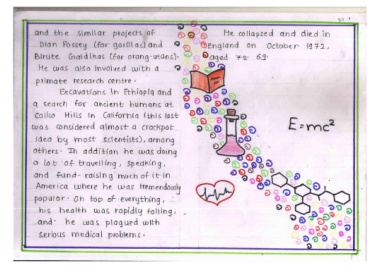 and the similar projects of
Dian Fossey (for gorillas) and
Birute Galdinas (for orang-utans).
He was also involved with a
primate research centre.
Excavations in Ethiopia and
a search for ancient humans at
Calico Hills in California (this last
was considered almost a crackpot
idea by most scientists), among
others. In addition he was doing
a lot of travelling, speaking,
and fund-raising much of it in
America where he was tremendously
popular. On top of everything,
his health was rapidly failing,
and he was plagued with
serious medical problems.
He collapsed and died in
England on October 1972.
aged
E=mc²